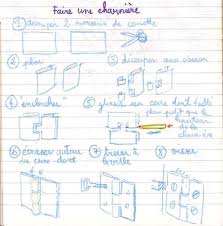 Faire une charnière
① découper 2 morceaux de canette
② plier
③ découper aux ciseaux
④ "emboîter"
⑤ glisser un cure dent taillé
plus petit que la
hauteur
de la
charnière
⑥ écraser autour
du cure-dent
⑦ trouer à
la vrille
⑧ visser